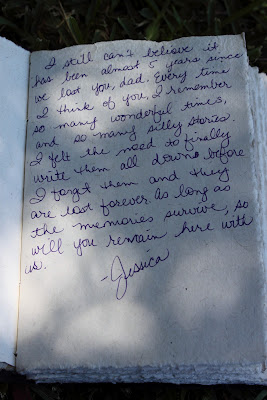 I still can't believe it
has been almost 5 years since
we lost you, dad. Every time
I think of you, I remember
so many wonderful times,
and so many silly stories.
I felt the need to finally
write them all down before
I forget them and they
are lost forever. As long as
the memories survive, so
will you remain here with
us.
-Jessica